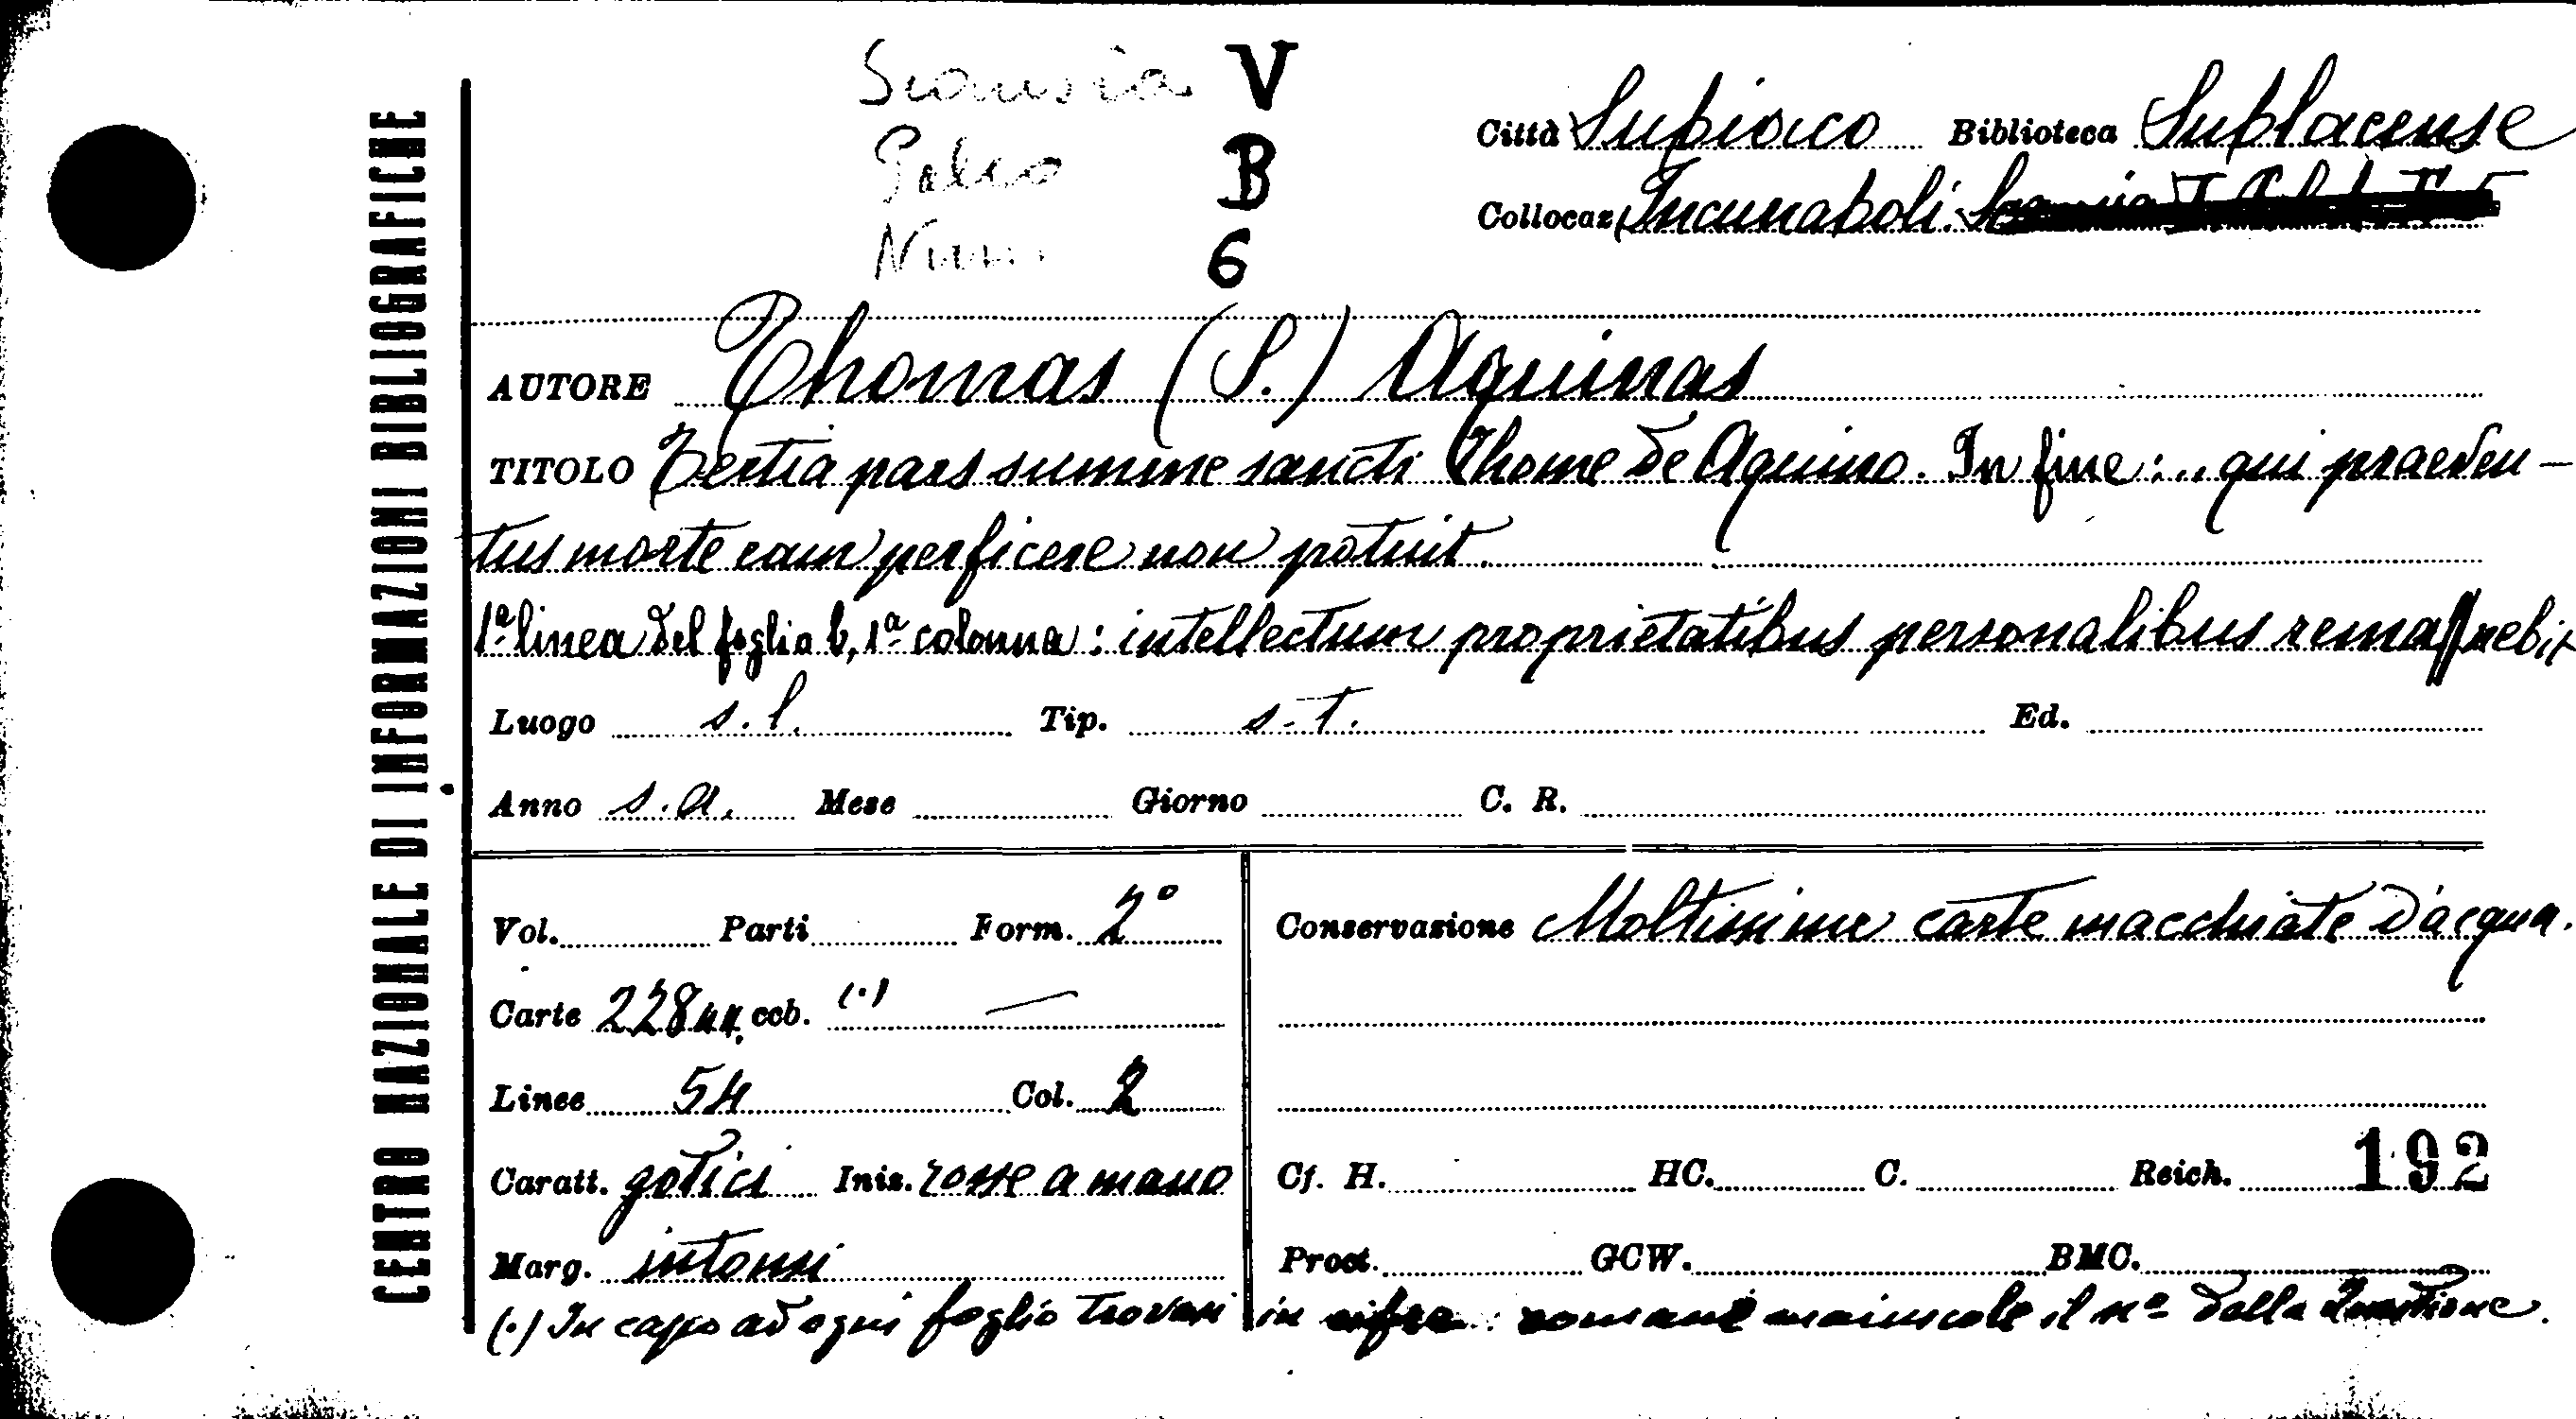 CENTRO NAZIONALE DI INFORMAZIONI BIBLIOGRAFICHE
Scansia V
Palco B
Num. 6
Città Subiaco Biblioteca Sublacense
Collocaz. Incunaboli.
AUTORE Thomas (S.) Aquinas
TITOLO Tertia pars summe sancti Thome de Aquino. In fine: .. qui praeven-
tus morte eam perficere non potuit.
1ª linea del foglio b, 1ª colonna: intellectum proprietatibus personalibus rema
Luogo s. l. Tip. s. t. Ed.
Anno s. a. Mese Giorno C. R.
Vol. Parti Form. 2°
Conservazione Moltissime carte macchiate d'acqua.
Carte 228 nn. ccb. (.) —
Linee 54 Col. 2
Caratt. gotici Iniz. rosse a mano
Cf. H. HC. C. Reich. 192
Marg. intonsi
Proct. GCW. BMC.
(.) In capo ad ogni foglio trovasi in cifre romane maiuscole il nº della Questione.